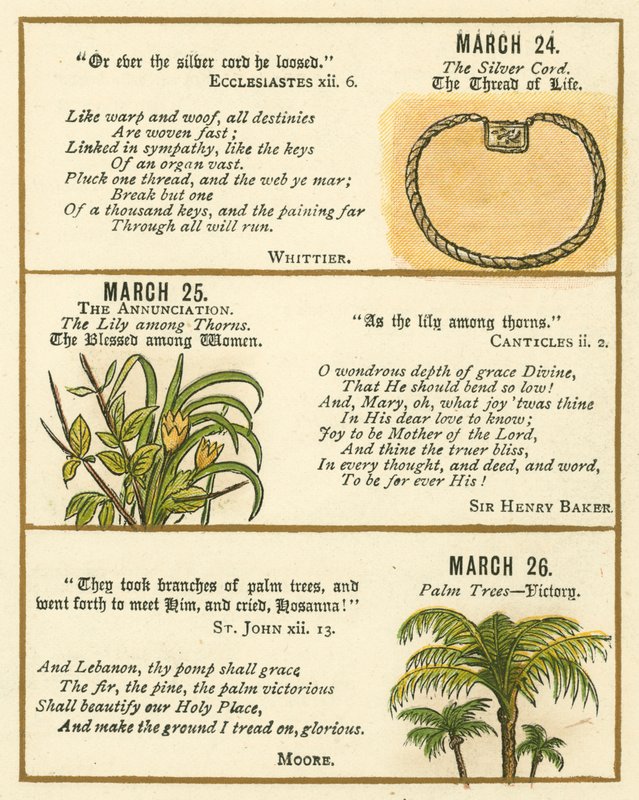 "Or ever the silver cord be loosed."
Ecclesiastes xii. 6.
Like warp and woof, all destinies
Are woven fast;
Linked in sympathy, like the keys
Of an organ vast.
Pluck one thread, and the web ye mar;
Break but one
Of a thousand keys, and the paining far
Through all will run.
Whittier.
MARCH 24.
The Silver Cord.
The Thread of Life.
MARCH 25.
The Annunciation.
The Lily among Thorns.
The Blessed among Women.
"As the lily among thorns."
Canticles ii. 2.
O wondrous depth of grace Divine,
That He should bend so low!
And, Mary, oh, what joy 'twas thine
In His dear love to know;
Joy to be Mother of the Lord,
And thine the truer bliss,
In every thought, and deed, and word,
To be for ever His!
Sir Henry Baker.
"They took branches of palm trees, and
went forth to meet Him, and cried, Hosanna!"
St. John xii. 13.
And Lebanon, thy pomp shall grace
The fir, the pine, the palm victorious
Shall beautify our Holy Place,
And make the ground I tread on, glorious.
Moore.
MARCH 26.
Palm Trees—Victory.